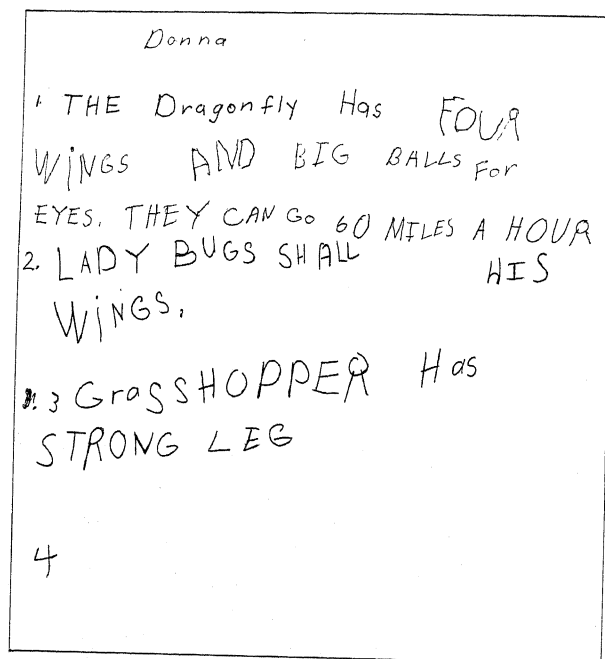 Donna
1. THE Dragonfly Has FOUR
WiNGS AND BIG BALLS For
EYES. THEY CAN Go 60 MILES A HOUR
2. LADY BUGS SHALL HIS
WiNGS.
3 GraSSHOPPER Has
STRONG LEG
4